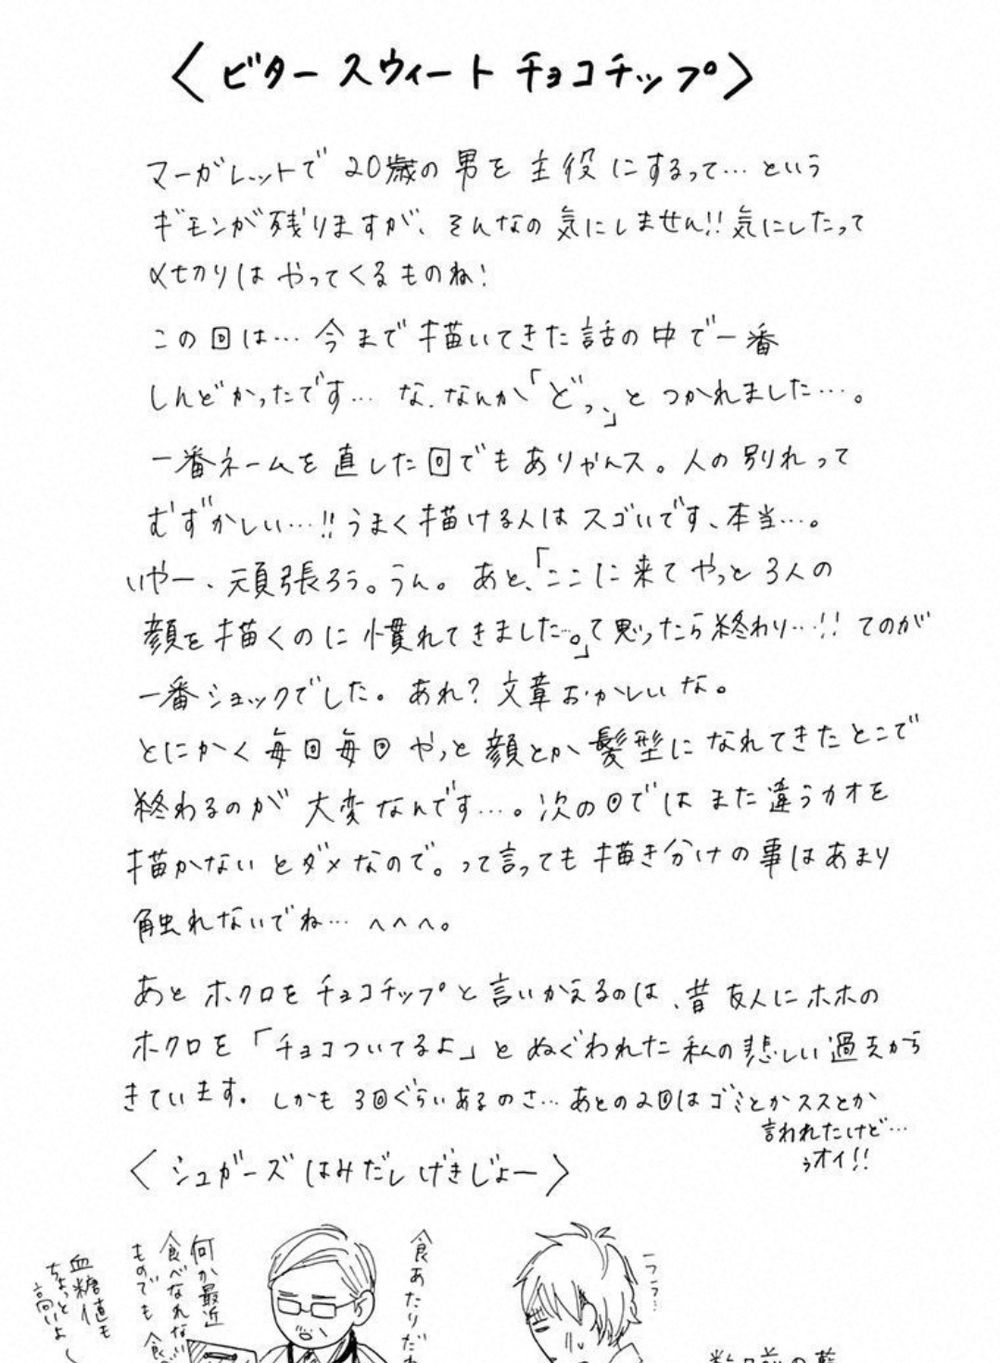 〈ビタースウィートチョコチップ〉
マーガレットで20歳の男を主役にするって…という
ギモンが残りますが、そんなの気にしません!!気にしたって
〆切りはやってくるものね!
この回は…今まで描いてきた話の中で一番
しんどかったです…な、なんか「どっ、」とつかれました…。
一番ネームを直した回でもありやんス。人の別れって
むずかしい…!!うまく描ける人はスゴいです、本当…。
いやー、頑張ろう。うん。あと、「ここに来てやっと3人の
顔を描くのに慣れてきました…。」て思ったら終わり…!!てのが
一番ショックでした。あれ?文章おかしいな。
とにかく毎回毎回やっと顔とか髪型になれてきたとこで
終わるのが大変なんです…。次の回ではまた違うカオを
描かないとダメなので。って言っても描き分けの事はあまり
触れないでね…へへへ。
あとホクロをチョコチップと言いかえるのは、昔友人にホホの
ホクロを「チョコついてるよ」とぬぐわれた私の悲しい過去から
きています。しかも3回ぐらいあるのさ…あとの2回はゴミとかススとか
言われたけど…
ぅオイ!!
〈シュガーズはみだしげきじょー〉
食あたりだ
何か最近
食べなれない
ものでも食
血糖値も
ちょっと
高いよ